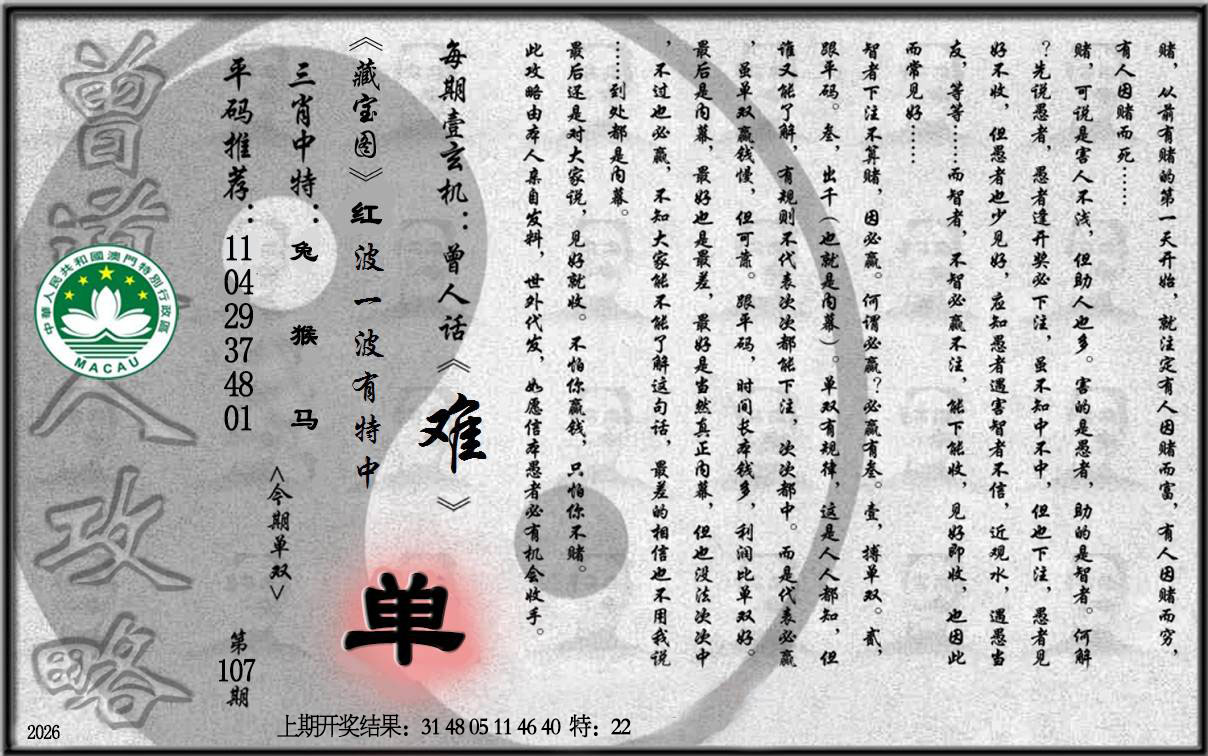 赌,从前有赌的第一天开始,就注定有人因赌而富,有人因赌而穷,
有人因赌而死……
赌,可说是害人不浅,但助人也多。害的是愚者,助的是智者。何解
?先说愚者,愚者逢开奖必下注,虽不知中不中,但也下注,愚者见
好不收,但愚者也少见好,应知愚者遇害智者不信,近观水,遇愚当
友,等等……而智者,不智必赢不注,能下能收,见好即收,也因此
而常见好……
智者下注不算赌,因必赢。何谓必赢?必赢有叁。壹,搏单双。贰,
跟平码。叁,出千(也就是内幕)。单双有规律,这是人人都知,但
谁又能了解,有规则不代表次次都能下注,次次都中。而是代表必赢
,虽单双赢钱慢,但可靠。跟平码,时间长本钱多,利润比单双好。
最后是内幕,最好也是最差,最好是当然真正内幕,但也没法次次中
,不过也必赢,不知大家能不能了解这句话,最差的相信也不用我说
……到处都是内幕。
最后还是对大家说,见好就收。不怕你赢钱,只怕你不赌。
此攻略由本人亲自发料,世外代发,如愿信本愚者必有机会收手。
每期壹玄机:曾人话《难》
《藏宝图》红波一波有特中
三肖中特:兔 猴 马
平码推荐:11 04 29 37 48 01
<今期单双>
单
第107期
曾道人攻略
中華人民共和國澳門特別行政區
MACAU
上期开奖结果:31 48 05 11 46 40 特:22
2026